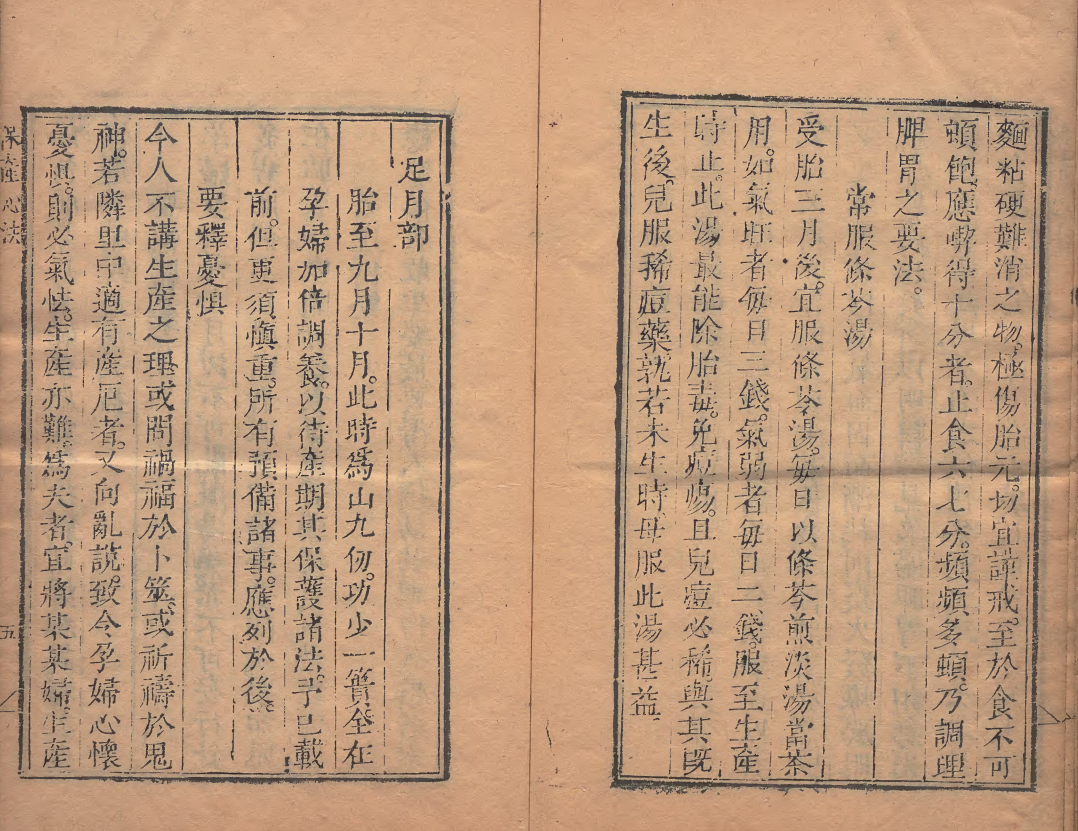 麵粘硬難消之物。極傷胎元。切宜謹戒。至於食不可
頓飽。應喫得十分者。止食六七分。頻頻多頓。乃調理
脾胃之要法。
常服條芩湯
受胎三月後。宜服條芩湯。每日以條芩煎淡湯當茶
用。如氣旺者每日三錢。氣弱者每日二錢。服至生產
時止。此湯最能除胎毒。免痘傷。且兒痘必稀。與其既
生後。兒服稀痘藥。孰若未生時母服此湯甚益
足月部
胎至九月十月。此時為山九仞。功少一簣。全在
孕婦加倍調養。以待產期。其保護諸法。予已載
前。但更須慎重。所有預備諸事。應列於後。
要釋憂惧
今人不講生產之理。或問禍福於卜筮。或祈禱於鬼
神。若隣里中適有產厄者。又向亂說。致令孕婦心懷
憂惧。則必氣怯。生產亦難。為夫者。宜將某某婦。生產
保產心法
五